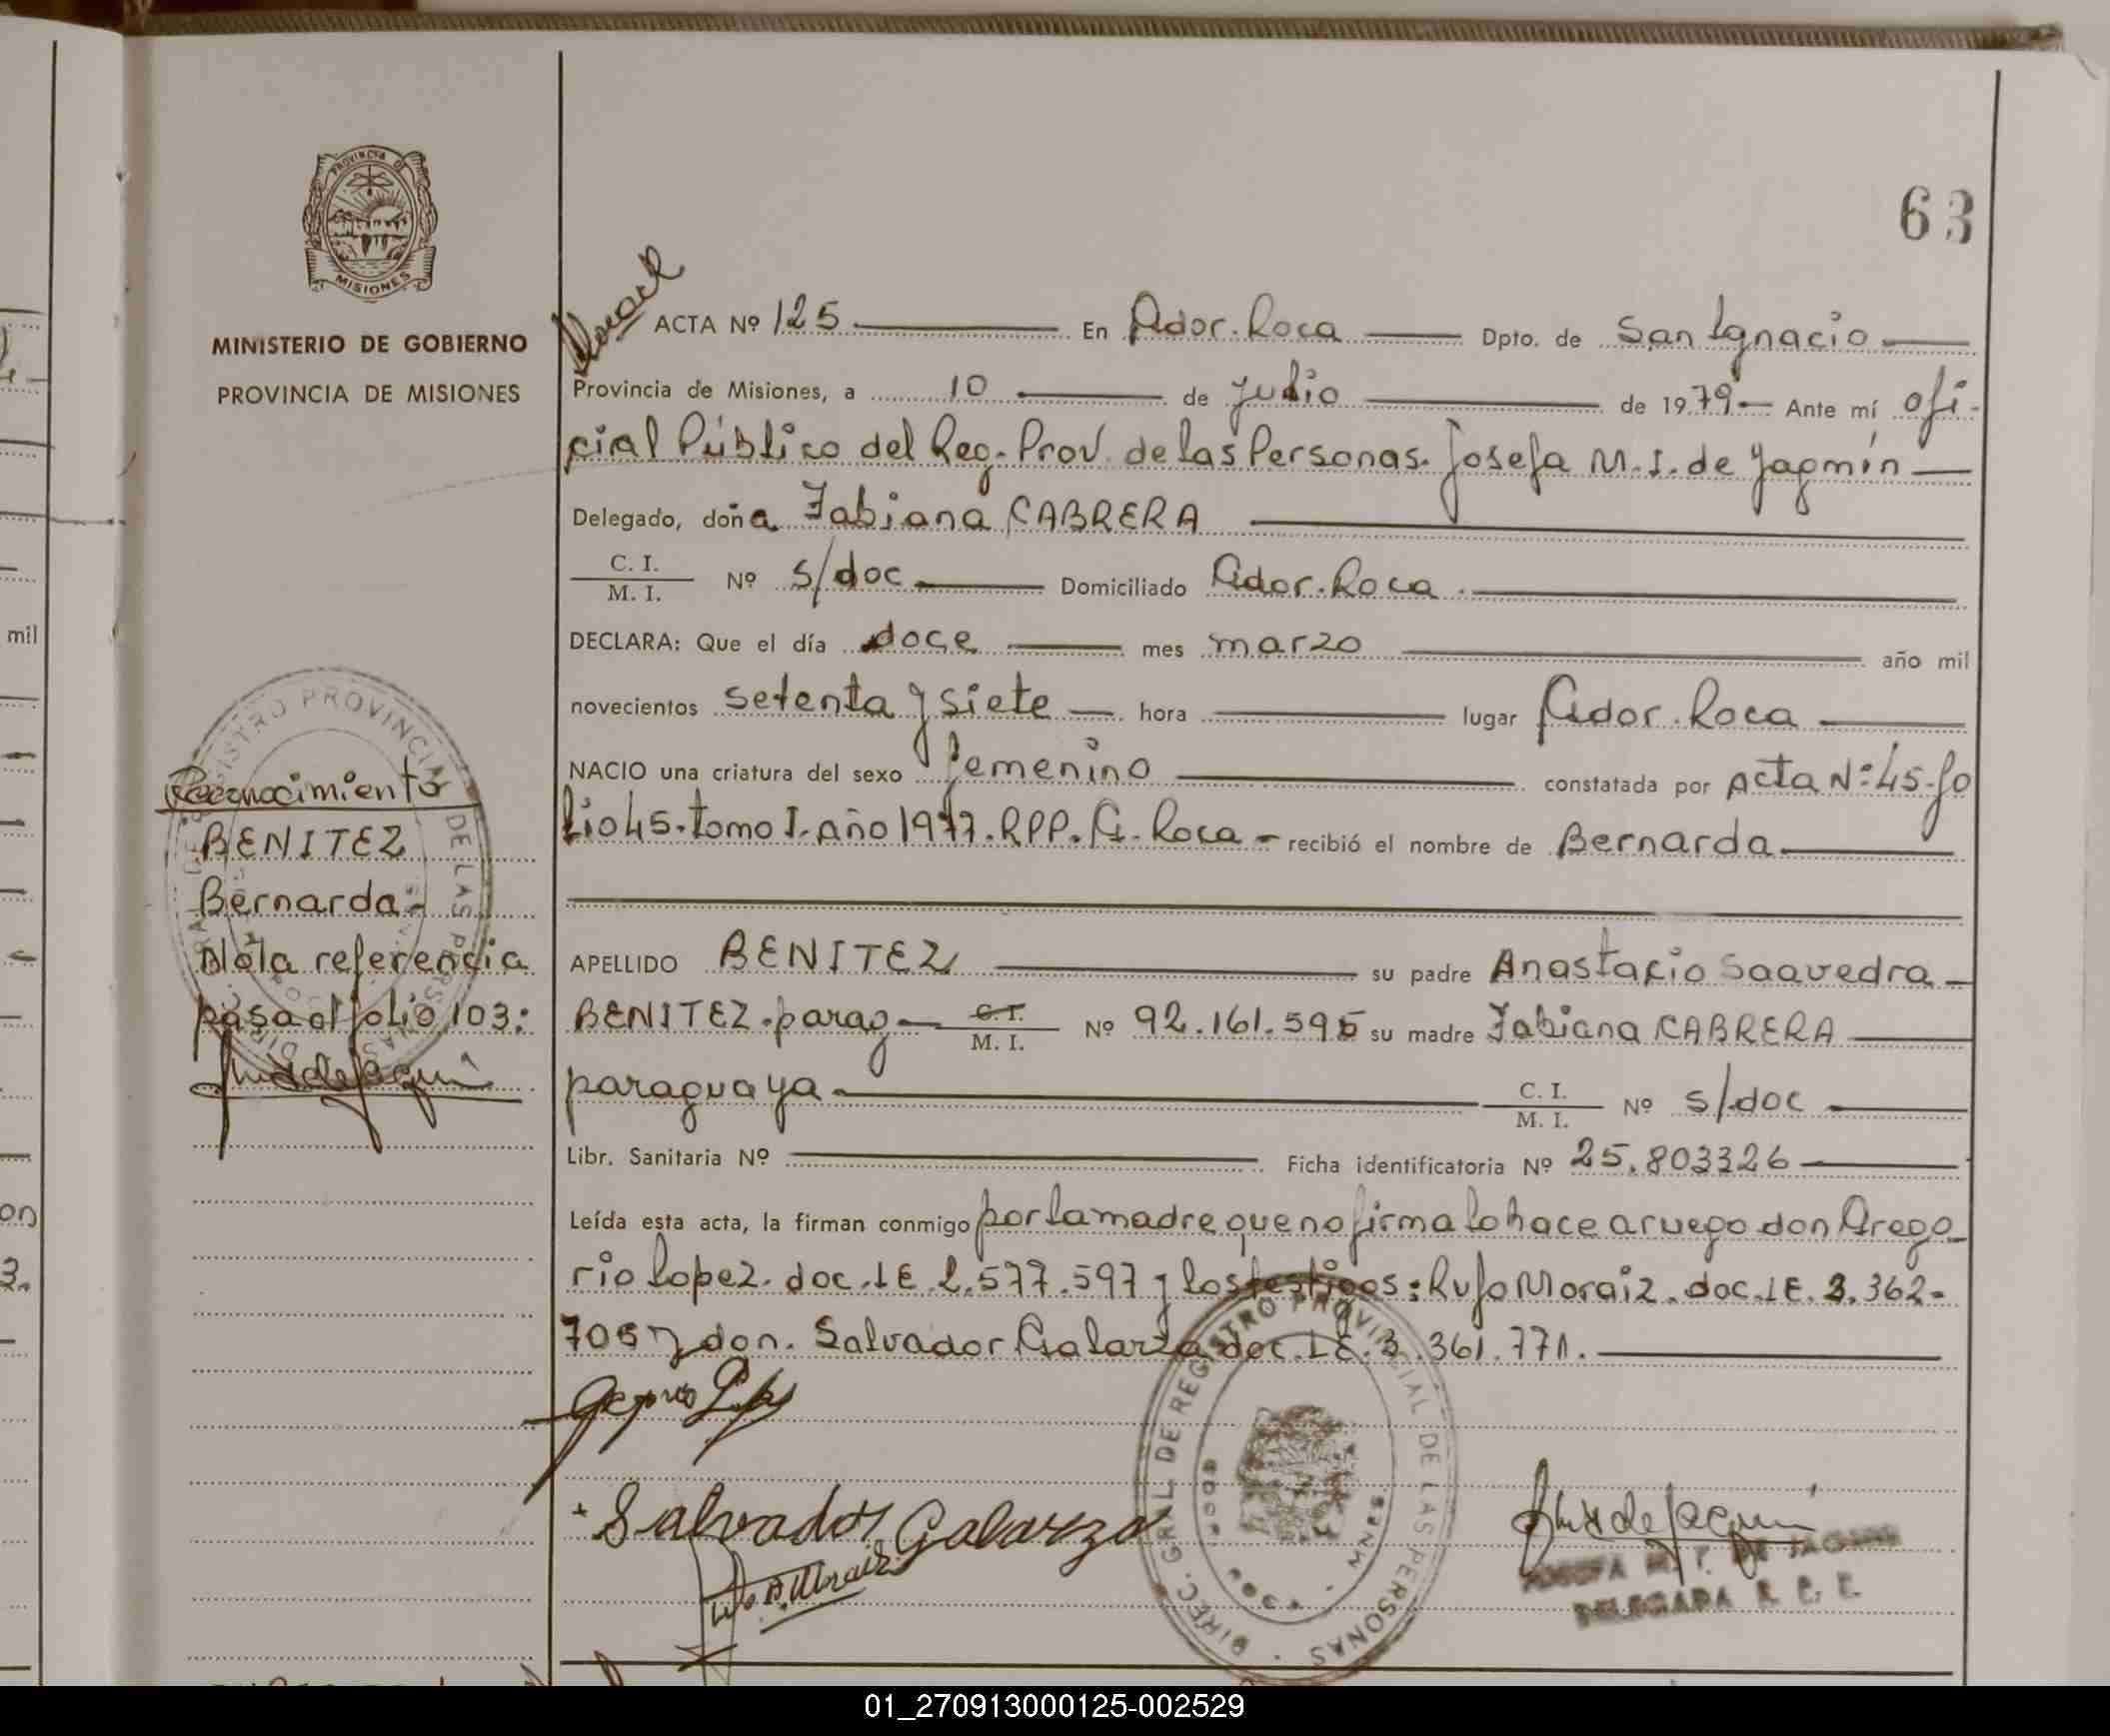 63
PROVINCIA DE
MISIONES
MINISTERIO DE GOBIERNO
PROVINCIA DE MISIONES
ACTA Nº 125 En Gdor. Roca Dpto. de San Ignacio
Provincia de Misiones, a 10 de Julio de 1979 Ante mí ofi-
cial Público del Reg. Prov. de las Personas. Josefa M. I. de Yagmín
Delegado, doña Fabiana CABRERA
C. I.
M. I. Nº s/doc Domiciliado Gdor. Roca.
DECLARA: Que el día doce mes marzo año mil
novecientos setenta y siete hora lugar Gdor. Roca
NACIO una criatura del sexo femenino constatada por Acta Nº 45-fo
lio 45. tomo I. año 1977. RPP. G. Roca - recibió el nombre de Bernarda
APELLIDO BENITEZ su padre Anastacio Saavedra
BENITEZ. parag C.I.
M. I. Nº 92.161.595 su madre Fabiana CABRERA
paraguaya C. I.
M. I. Nº s/doc
Libr. Sanitaria Nº Ficha identificatoria Nº 25.803326
Leída esta acta, la firman conmigo por la madre que no firma lo hace a ruego don Grego
rio Lopez. doc. LE 2.577.597 y los testigos: Rufo Moraiz. doc. LE. 3.362-
705 y don. Salvador Galarza doc. LE. 3.361.771.
Salvador Galarza
DIREC. GRAL. DE REGISTRO PROVINCIAL DE LAS PERSONAS
JOSEFA M. I. DE JAGMIN
DELEGADA R. P. P.
Reconocimiento
BENITEZ
Bernarda-
Nota referencia
pasa al folio 103:
REGISTRO PROVINCIAL DE LAS PERSONAS
mil
on
3.
01_270913000125-002529